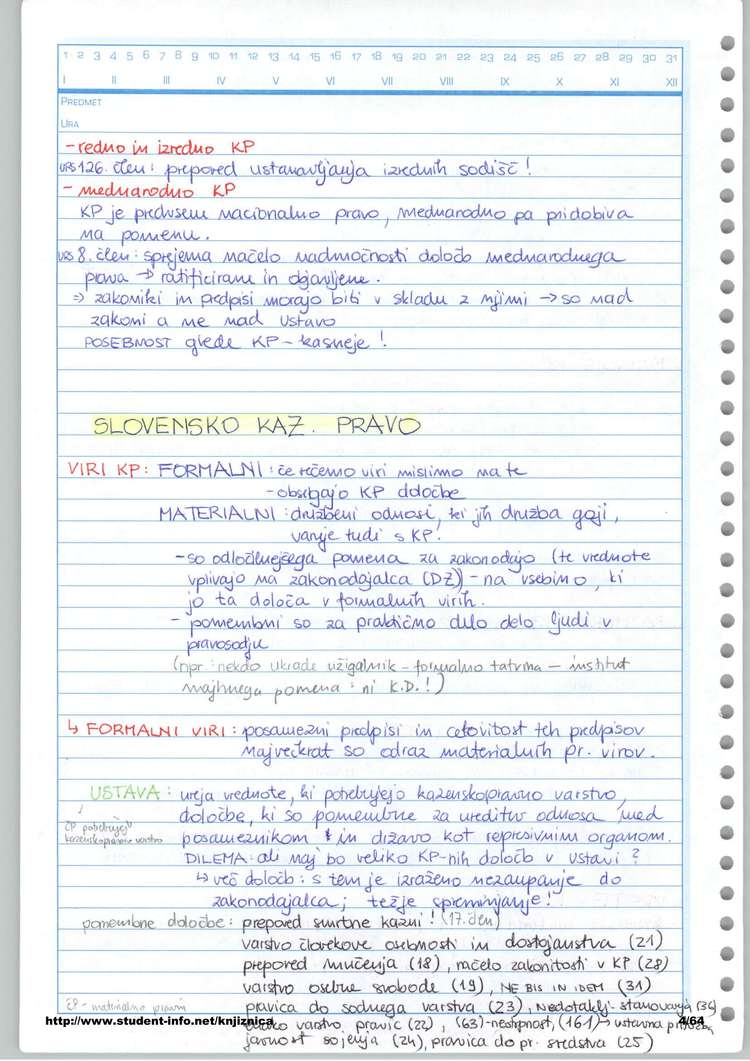 1 2 3 4 5 6 7 8 9 10 11 12 13 14 15 16 17 18 19 20 21 22 23 24 25 26 27 28 29 30 31
I II III IV V VI VII VIII IX X XI XII
PREDMET
URA
- redno in izredno KP
URS 126. člen : prepored ustanavljanja izrednih sodišč !
- mednarodno KP
KP je predvsem nacionalno pravo, mednarodno pa pridobiva
na pomenu.
URS 8. člen : sprejema načelo nadmočnosti določb mednarodnega
prava → ratificirane in objavljene.
⇒ zakoniki in predpisi morajo biti v skladu z njimi → so nad
zakoni a ne nad ustavo
POSEBNOST glede KP - kasneje !
SLOVENSKO KAZ. PRAVO
VIRI KP : FORMALNI : če rečemo viri mislimo na te
- obsegajo KP določbe
MATERIALNI : družbeni odnosi, ki jih družba goji,
varuje tudi s KP.
- so odločilnejšega pomena za zakonodajo (te vrednote
vplivajo na zakonodajalca (DZ)) - na vsebino, ki
jo ta določa v formalnih virih.
- pomembni so za praktično delo delo ljudi v
pravosodju
(npr : nekdo ukrade vžigalnik - formalno tatvina - institut
majhnega pomena : ni K.D. !)
↳ FORMALNI VIRI : posamezni predpisi in celovitost teh predpisov
največkrat so odraz materialnih pr. virov.
USTAVA : ureja vrednote, ki potrebujejo kazenskopravno varstvo,
določbe, ki so pomembne za ureditev odnosa med
ČP potrebujej
kazenskopravno varstvo
posameznikom in državo kot represivnim organom.
DILEMA : ali naj bo veliko KP-nih določb v ustavi ?
↳ več določb : s tem je izraženo nezaupanje do
zakonodajalca; težje spreminjanje !
pomembne določbe : prepored smrtne kazni ! (17. člen)
varstvo človekove osebnosti in dostojanstva (21)
prepored mučenja (18), načelo zakonitosti v KP (28)
varstvo osebne svobode (19), NE BIS IN IDEM (31)
ČP - materialno pravni
pravica do sodnega varstva (23), nedotaklj. stanovanja (36)
http://www.student-info.net/knjiznica
varstvo pravic (22), (63) - nestrpnost, (161) → ustavna pritožba
4/64
javnost sojenja (24), pravica do pr. sredstva (25)